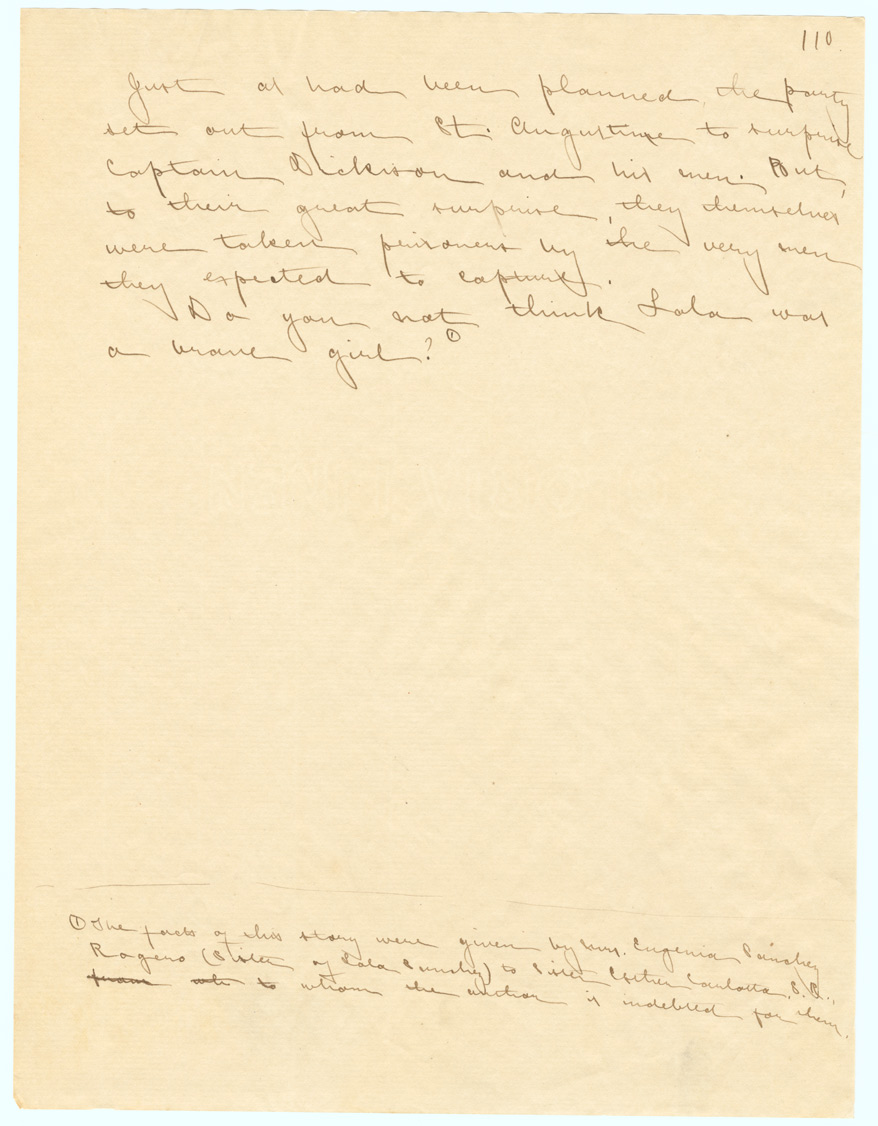 110.
Just as had been planned, the party
set out from St. Augustine to surprise
Captain Dickison and his men. But,
to their great surprise, they themselves
were taken prisoners by the very men
they expected to capture.
Do you not think Lola was
a brave girl? ①
① The facts of this story were given by Mrs. Eugenia Sánchez
Rogero (Sister of Lola Sánchez) to Sister Esther Carlotta, S.R.,
from to whom the author is indebted for them.